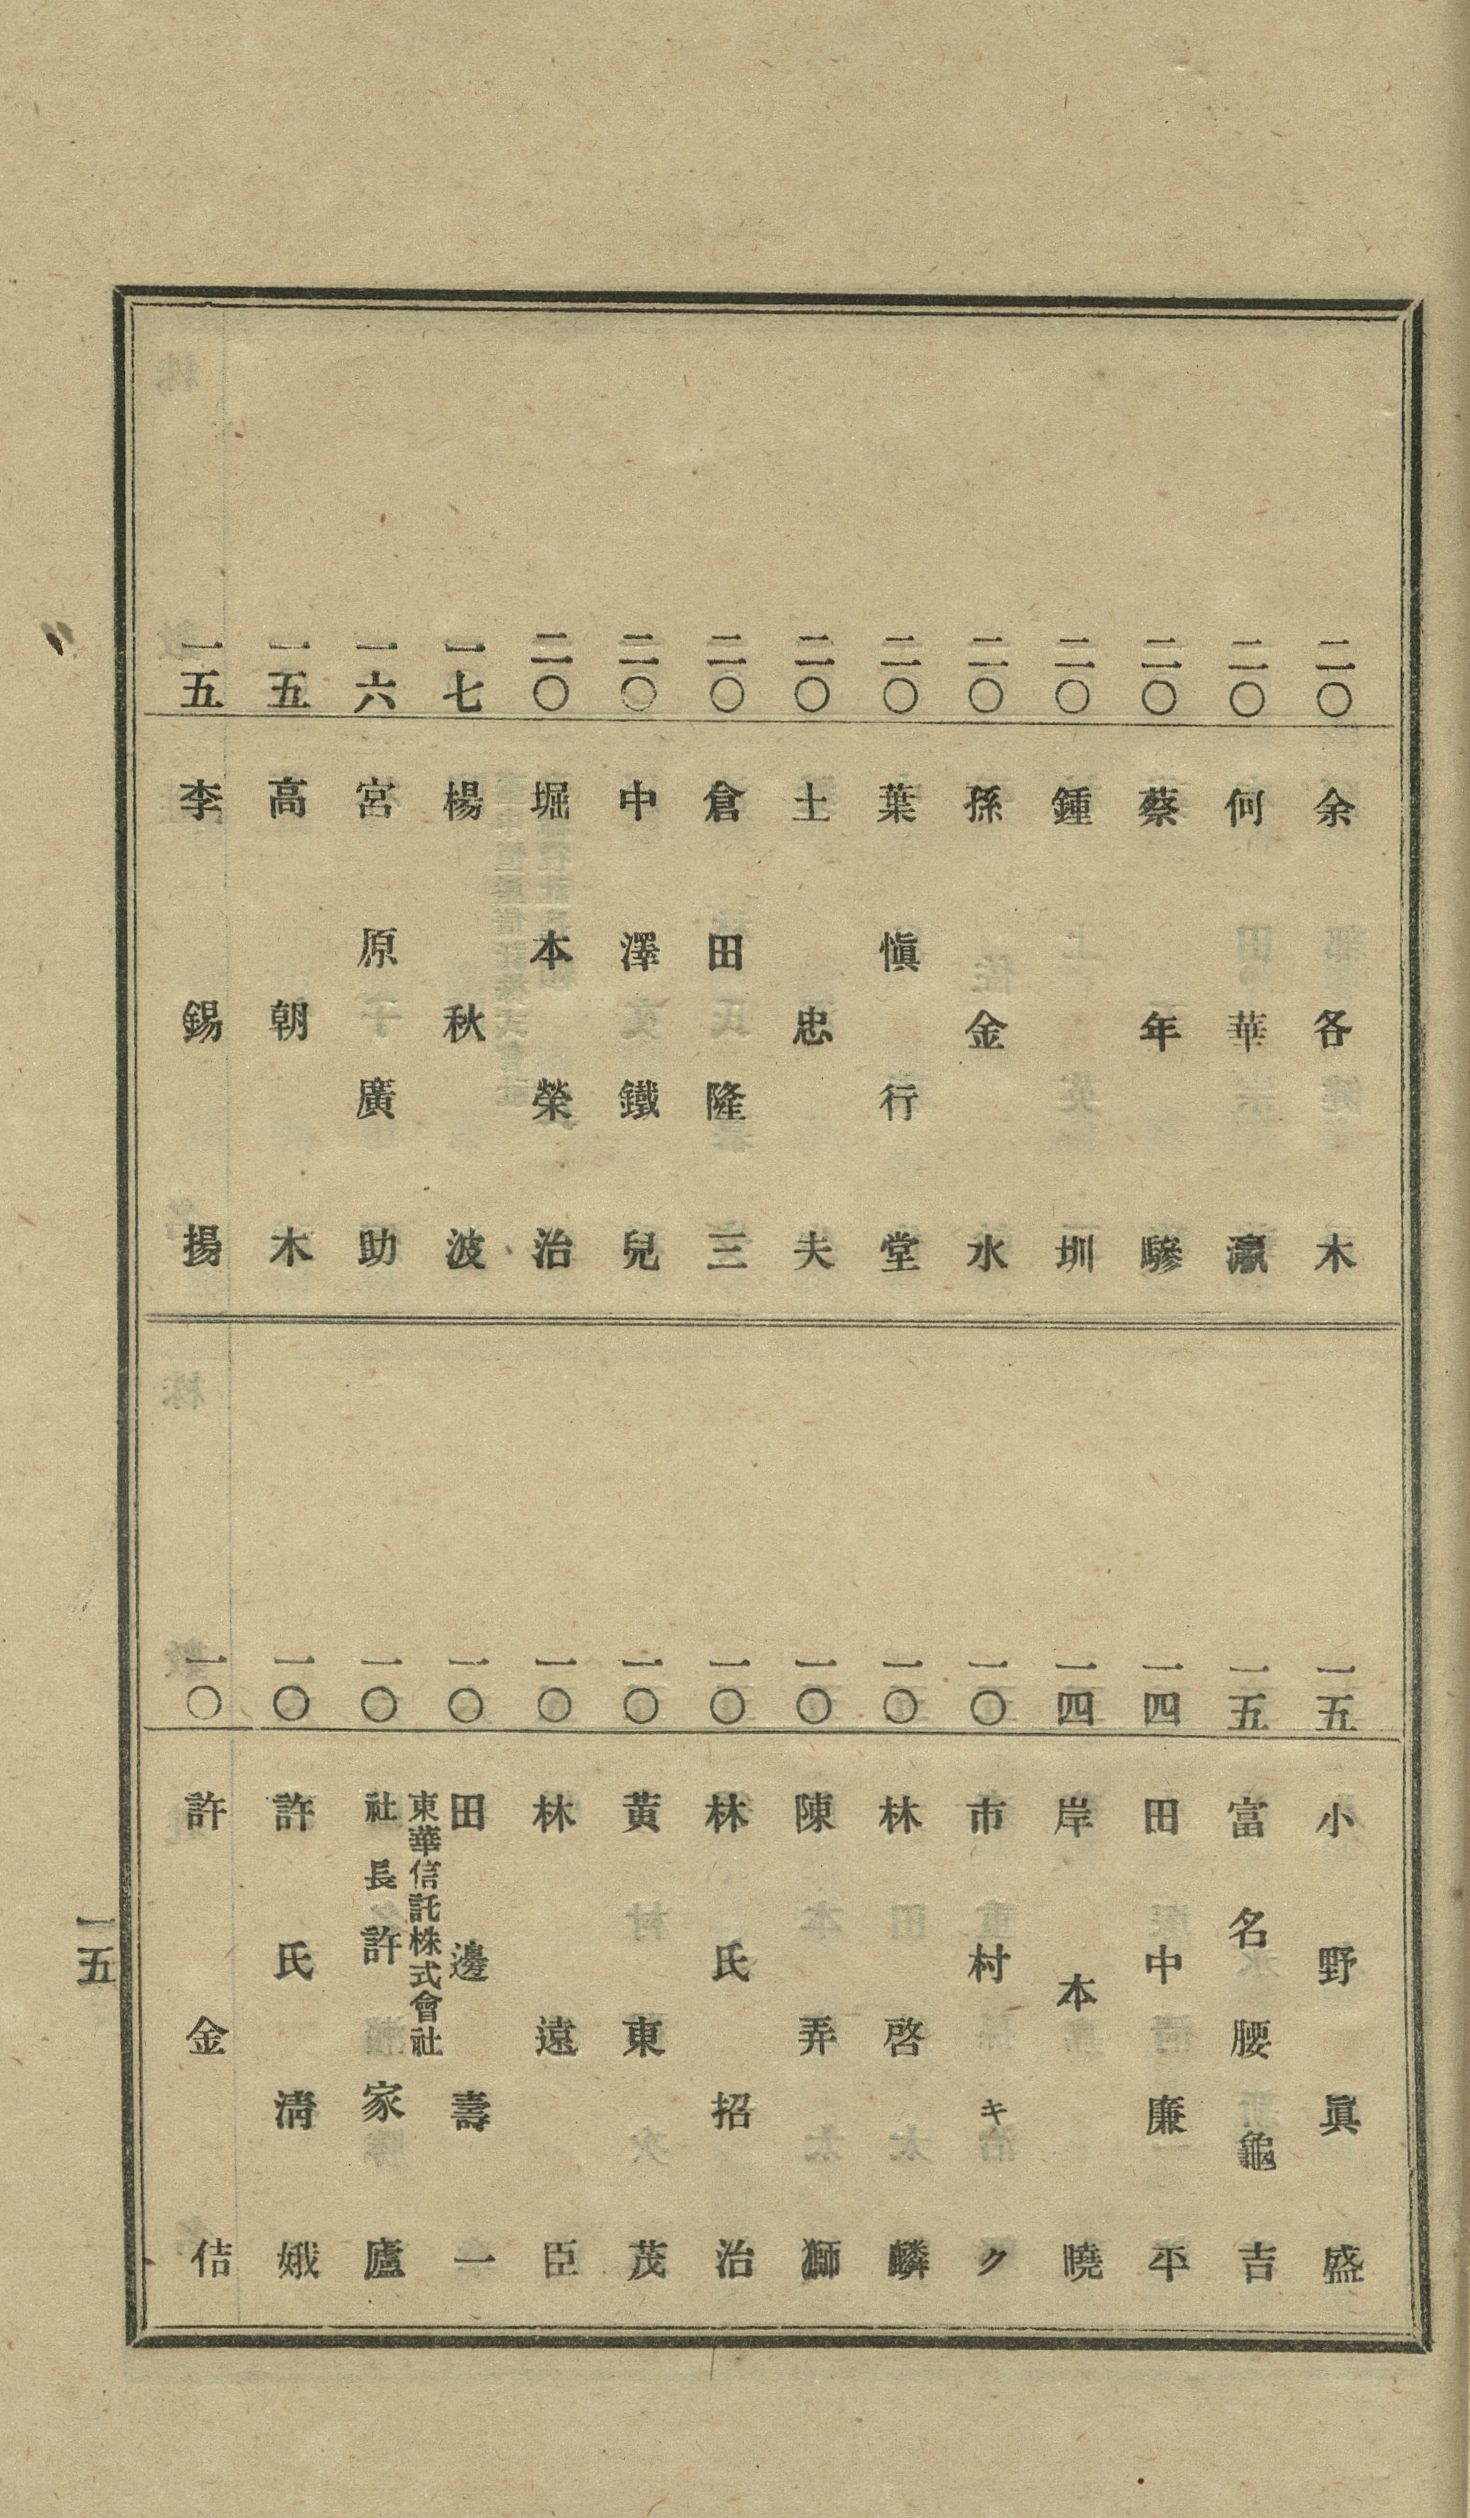 二〇 余各木
二〇 何華瀛
二〇 蔡年驂
二〇 鍾圳
二〇 孫金水
二〇 葉愼行堂
二〇 土忠夫
二〇 倉田隆三
二〇 中澤鐵兒
二〇 堀本榮治
一七 楊秋波
一六 宮原廣助
一五 高朝木
一五 李錫揚
一五 小野眞盛
一五 富名腰龜吉
一四 田中廉平
一四 岸本曉
一〇 市村キク
一〇 林啓麟
一〇 陳弄獅
一〇 林氏招治
一〇 黃東茂
一〇 林遠臣
一〇 田邊壽一
一〇 東華信託株式會社
社長 許家廬
一〇 許氏淸娥
一〇 許金佶
一五